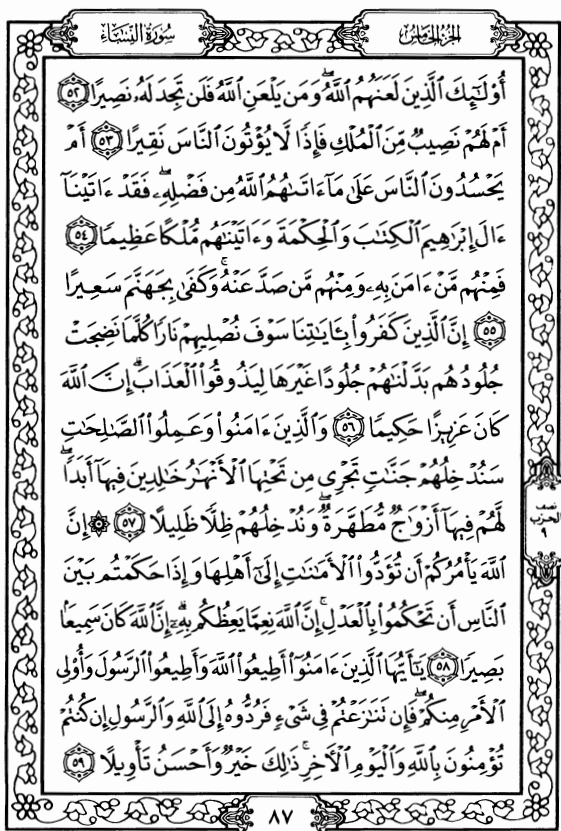 سُورَةُ النِّسَاءِ
الجُزْءُ الخَامِسُ
أُوْلَٰٓئِكَ ٱلَّذِينَ لَعَنَهُمُ ٱللَّهُۖ وَمَن يَلْعَنِ ٱللَّهُ فَلَن تَجِدَ لَهُۥ نَصِيرًا ٥٢
أَمْ لَهُمْ نَصِيبٌ مِّنَ ٱلْمُلْكِ فَإِذًا لَّا يُؤْتُونَ ٱلنَّاسَ نَقِيرًا ٥٣ أَمْ
يَحْسُدُونَ ٱلنَّاسَ عَلَىٰ مَآ ءَاتَىٰهُمُ ٱللَّهُ مِن فَضْلِهِۦۖ فَقَدْ ءَاتَيْنَآ
ءَالَ إِبْرَٰهِيمَ ٱلْكِتَٰبَ وَٱلْحِكْمَةَ وَءَاتَيْنَٰهُم مُّلْكًا عَظِيمًا ٥٤
فَمِنْهُم مَّنْ ءَامَنَ بِهِۦ وَمِنْهُم مَّن صَدَّ عَنْهُۚ وَكَفَىٰ بِجَهَنَّمَ سَعِيرًا
٥٥ إِنَّ ٱلَّذِينَ كَفَرُوا۟ بِـَٔايَٰتِنَا سَوْفَ نُصْلِيهِمْ نَارًا كُلَّمَا نَضِجَتْ
جُلُودُهُم بَدَّلْنَٰهُمْ جُلُودًا غَيْرَهَا لِيَذُوقُوا۟ ٱلْعَذَابَۗ إِنَّ ٱللَّهَ
كَانَ عَزِيزًا حَكِيمًا ٥٦ وَٱلَّذِينَ ءَامَنُوا۟ وَعَمِلُوا۟ ٱلصَّٰلِحَٰتِ
سَنُدْخِلُهُمْ جَنَّٰتٍ تَجْرِى مِن تَحْتِهَا ٱلْأَنْهَٰرُ خَٰلِدِينَ فِيهَآ أَبَدًاۖ
لَّهُمْ فِيهَآ أَزْوَٰجٌ مُّطَهَّرَةٌۖ وَنُدْخِلُهُمْ ظِلًّا ظَلِيلًا ٥٧ ۞ إِنَّ
ٱللَّهَ يَأْمُرُكُمْ أَن تُؤَدُّوا۟ ٱلْأَمَٰنَٰتِ إِلَىٰٓ أَهْلِهَا وَإِذَا حَكَمْتُم بَيْنَ
ٱلنَّاسِ أَن تَحْكُمُوا۟ بِٱلْعَدْلِۚ إِنَّ ٱللَّهَ نِعِمَّا يَعِظُكُم بِهِۦٓۗ إِنَّ ٱللَّهَ كَانَ سَمِيعًۢا
بَصِيرًا ٥٨ يَٰٓأَيُّهَا ٱلَّذِينَ ءَامَنُوٓا۟ أَطِيعُوا۟ ٱللَّهَ وَأَطِيعُوا۟ ٱلرَّسُولَ وَأُو۟لِى
ٱلْأَمْرِ مِنكُمْۖ فَإِن تَنَٰزَعْتُمْ فِى شَىْءٍ فَرُدُّوهُ إِلَى ٱللَّهِ وَٱلرَّسُولِ إِن كُنتُمْ
تُؤْمِنُونَ بِٱللَّهِ وَٱلْيَوْمِ ٱلْـَٔاخِرِۚ ذَٰلِكَ خَيْرٌ وَأَحْسَنُ تَأْوِيلًا ٥٩
نصف
الحزب
٩
٨٧